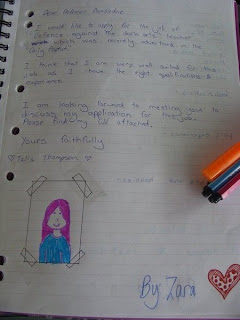 Dear Professor Dumbledore
I would like to apply for the job of
defence against the dark arts teacher
which was recently advertised in the
daily
I think that I am very well suited for this
job as I have the right qualifications &
experience
I am looking forward to meeting you to
discuss my application for the job.
Please find my CV attached.
Yours faithfully
Thompson
By Zara